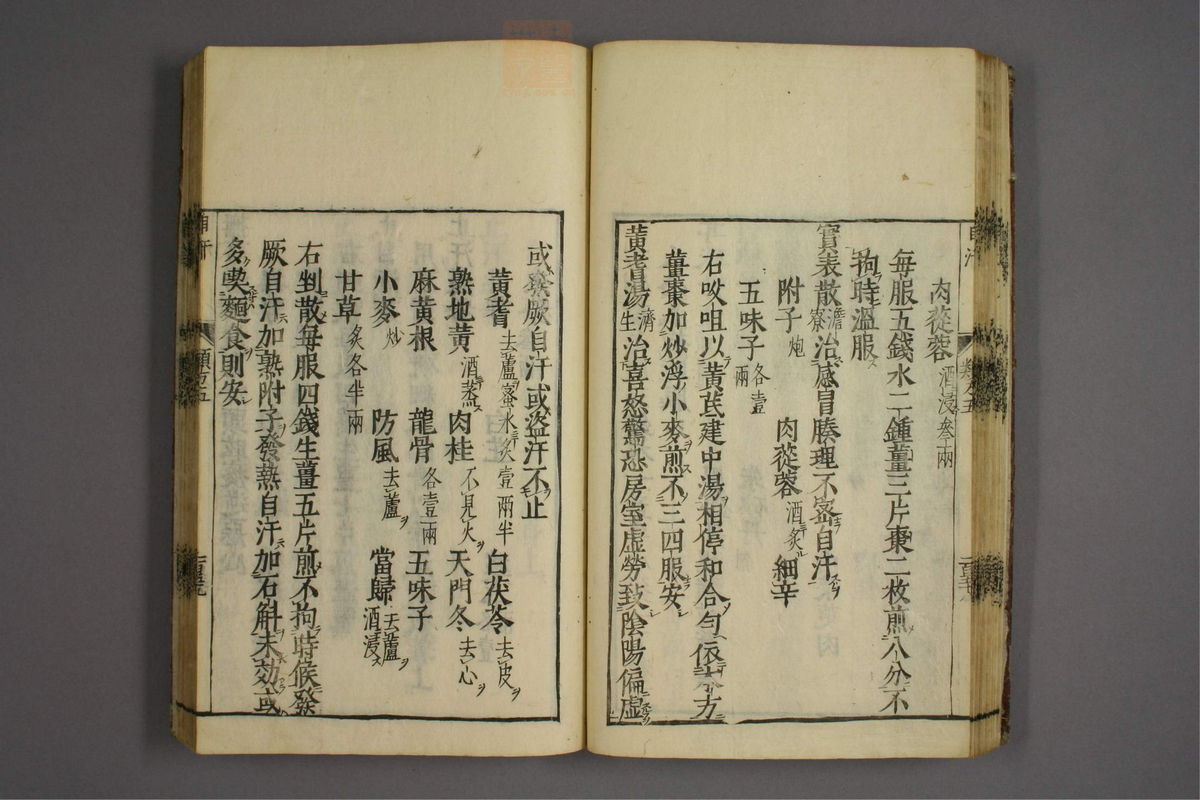 肉蓯蓉酒浸叁兩
每服五錢水二鍾薑三片棗二枚煎八分不
拘時溫服
實表散澹寮治感冒腠理不密自汗
附子炮 肉蓯蓉酒炙 細辛
五味子各壹兩
右㕮咀以黃芪建中湯相停和合勻依本方
薑棗加炒浮小麥煎不三四服安
黃耆湯濟生治喜怒驚恐房室虛勞致陰陽偏虛
或發厥自汗或盜汗不止
黃耆去蘆蜜水炙壹兩半 白茯苓去皮
熟地黃酒蒸 肉桂不見火 天門冬去心
麻黃根 龍骨各壹兩 五味子
小麥炒 防風去蘆 當歸去蘆酒浸
甘草炙各半兩
右剉散每服四錢生薑五片煎不拘時候發
厥自汗加熟附子發熱自汗加石斛未効或
多喫麵食則安
自汗